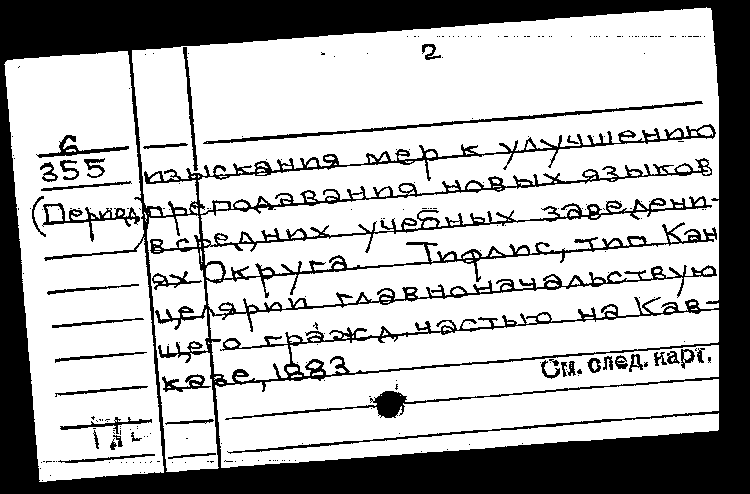 2
6
355
(Период)
изыскания мер к улучшению
преподавания новых языков
в средних учебных заведени-
ях Округа. Тифлис, тип Кан
целярии главноначальствую
щего гражд. частью на Кав-
казе, 1883.
См. след. карт.